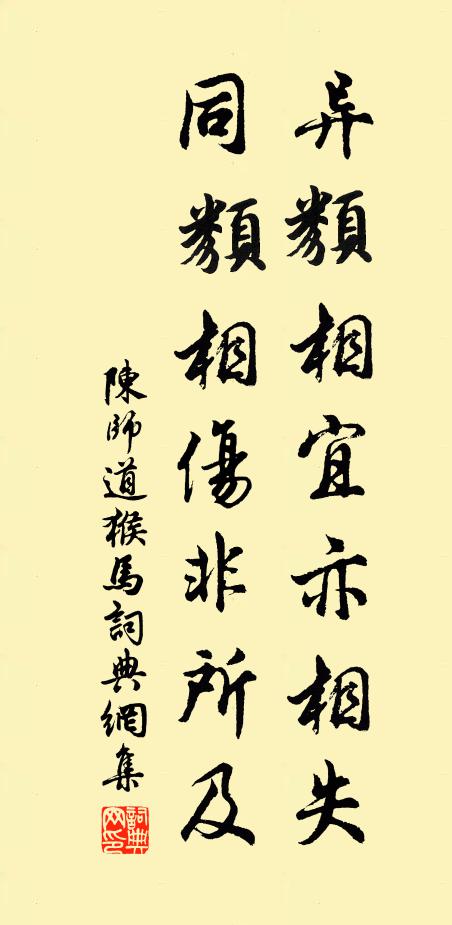 异類相宜亦相失
同類相傷非所及
陳師道猴馬詞典網集
詞典
网印